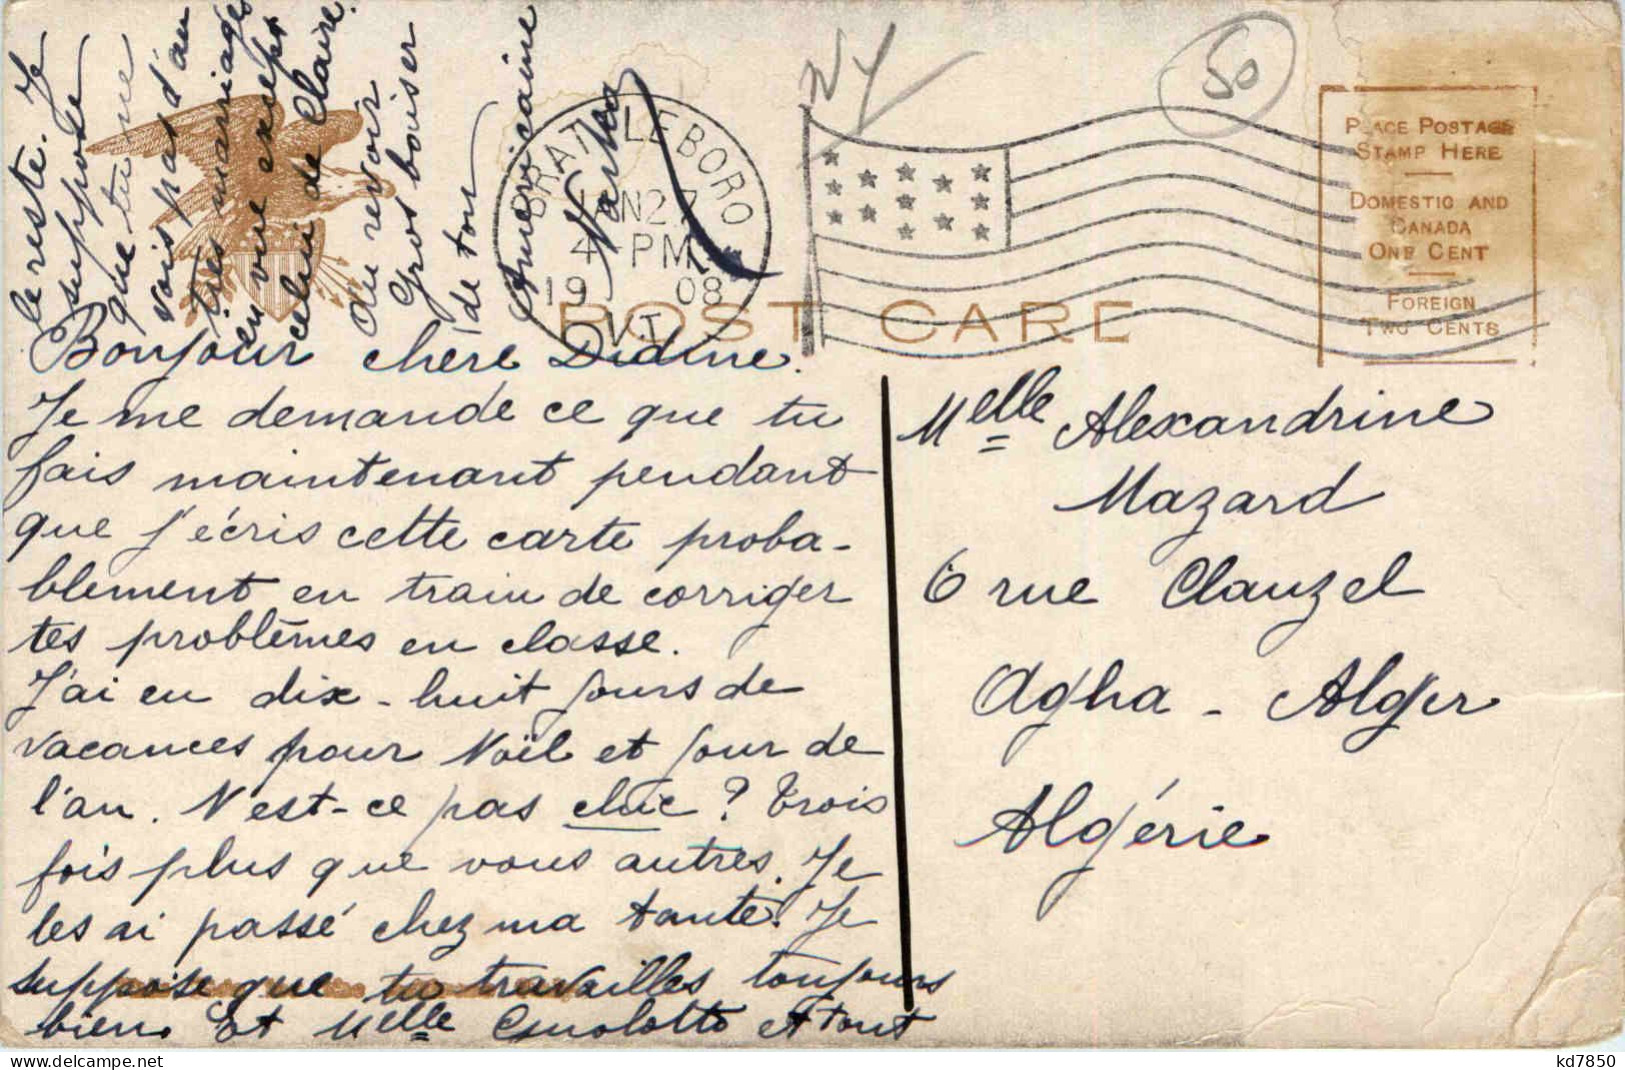 Bonjour chere Didine.
Je me demande ce que tu
fais maintenant pendant
que j'écris cette carte proba-
blement en train de corriger
tes problêmes en classe.
J'ai eu dix-huit jours de
vacances pour Noël et jour de
l'an. N'est-ce pas chic? Trois
fois plus que vous autres. Je
les ai passé chez ma tante. Je
suppose que tu travailles toujours
bien. Et Melle Guolotto et tout
le reste. Je
suppose
que tu ne
vois pas d'au
tres mariages
en vue except
celui de Claire.
Au revoir
Gros baiser
de ton
Américaine
Martha
NY
50
BRATTLEBORO
JAN 27
4-PM
19 08
VT.
POST CARD
PLACE POSTAGE
STAMP HERE
DOMESTIC AND
CANADA
ONE CENT
FOREIGN
TWO CENTS
Melle Alexandrine
Mazard
6 rue Clauzel
Agha - Alger
Algérie
kd7850
www.delcampe.net